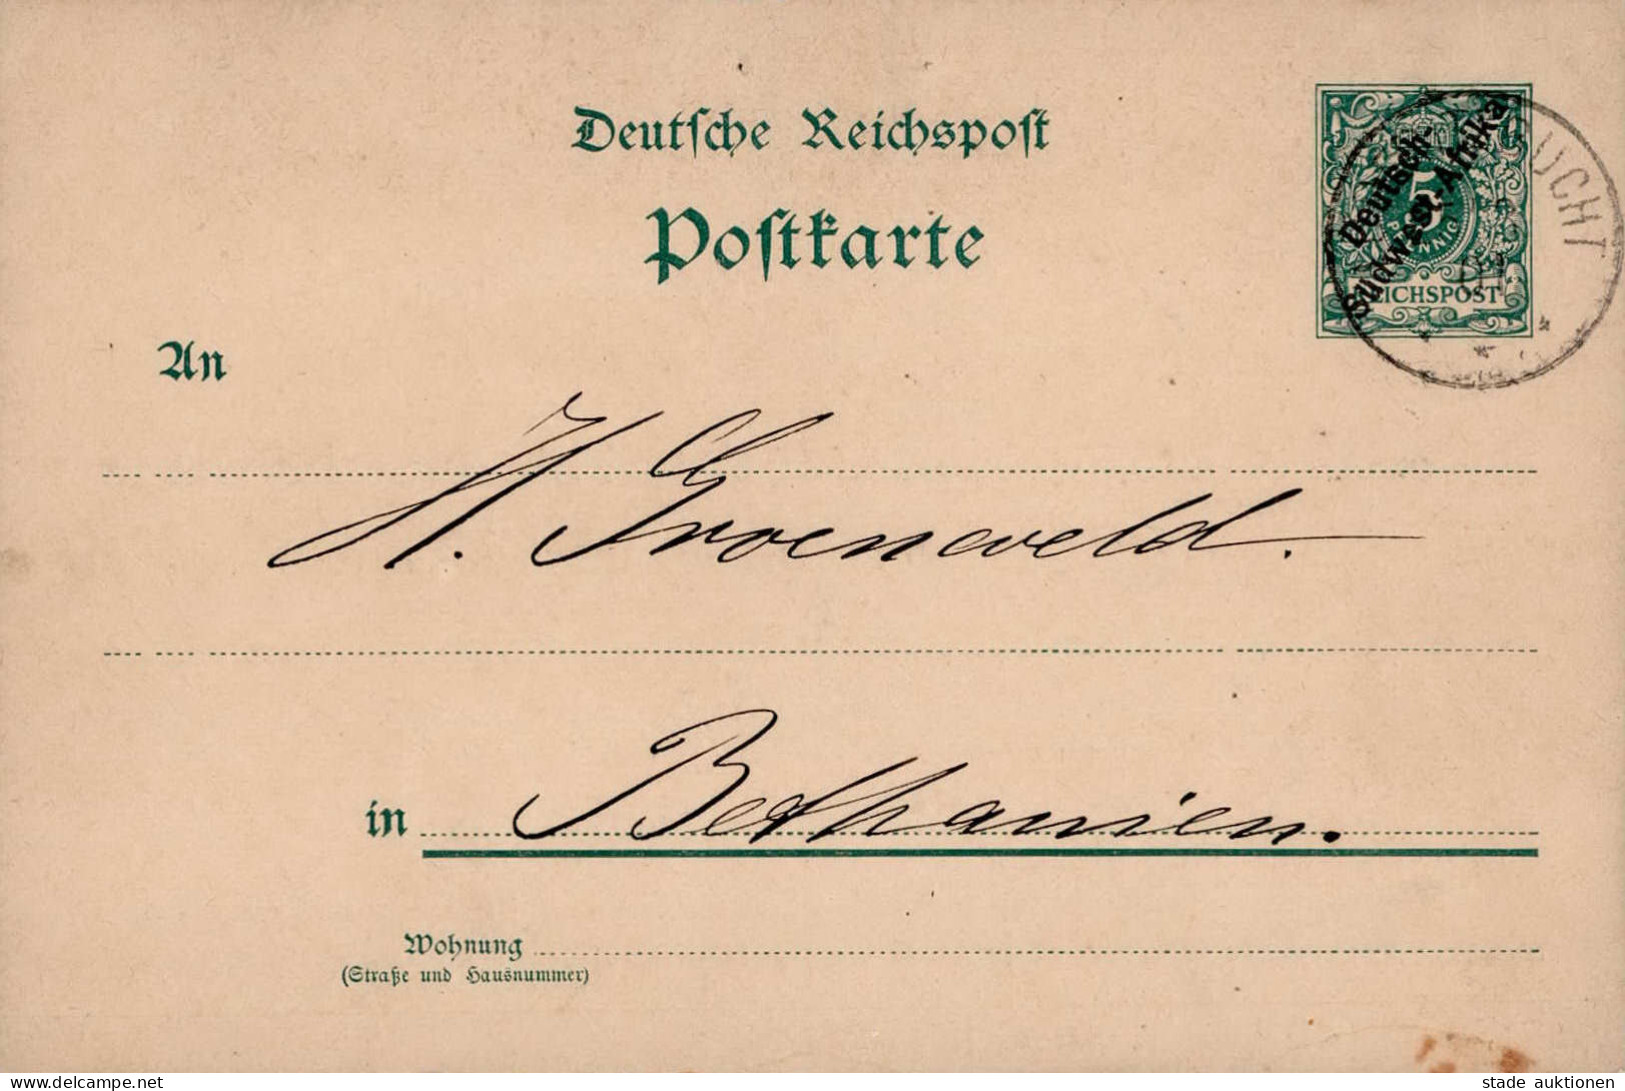 Deutsche Reichspost
Postkarte
Deutsch-
Südwest-Afrika
5
PFENNIG
REICHSPOST
BUCHT
An
H. Groeneveld.
in Bethanien.
Wohnung
(Straße und Hausnummer)
www.delcampe.net
stade auktionen